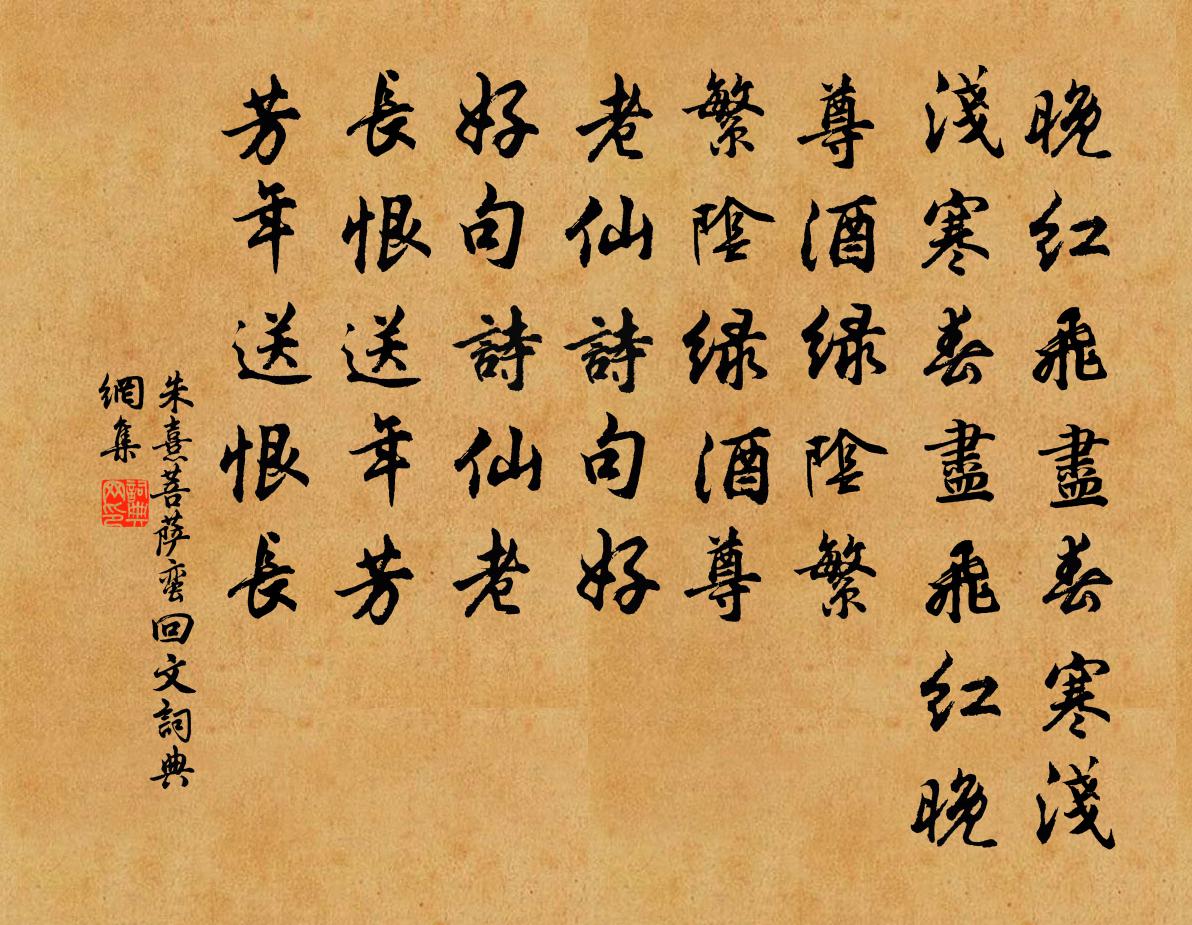 晚红飛盡春寒淺
淺寒春盡飛红晚
尊酒绿陰繁
繁陰绿酒尊
老仙詩句好
好句詩仙老
長恨送年芳
芳年送恨長
朱熹菩萨蛮回文詞典
網集
詞典
网印